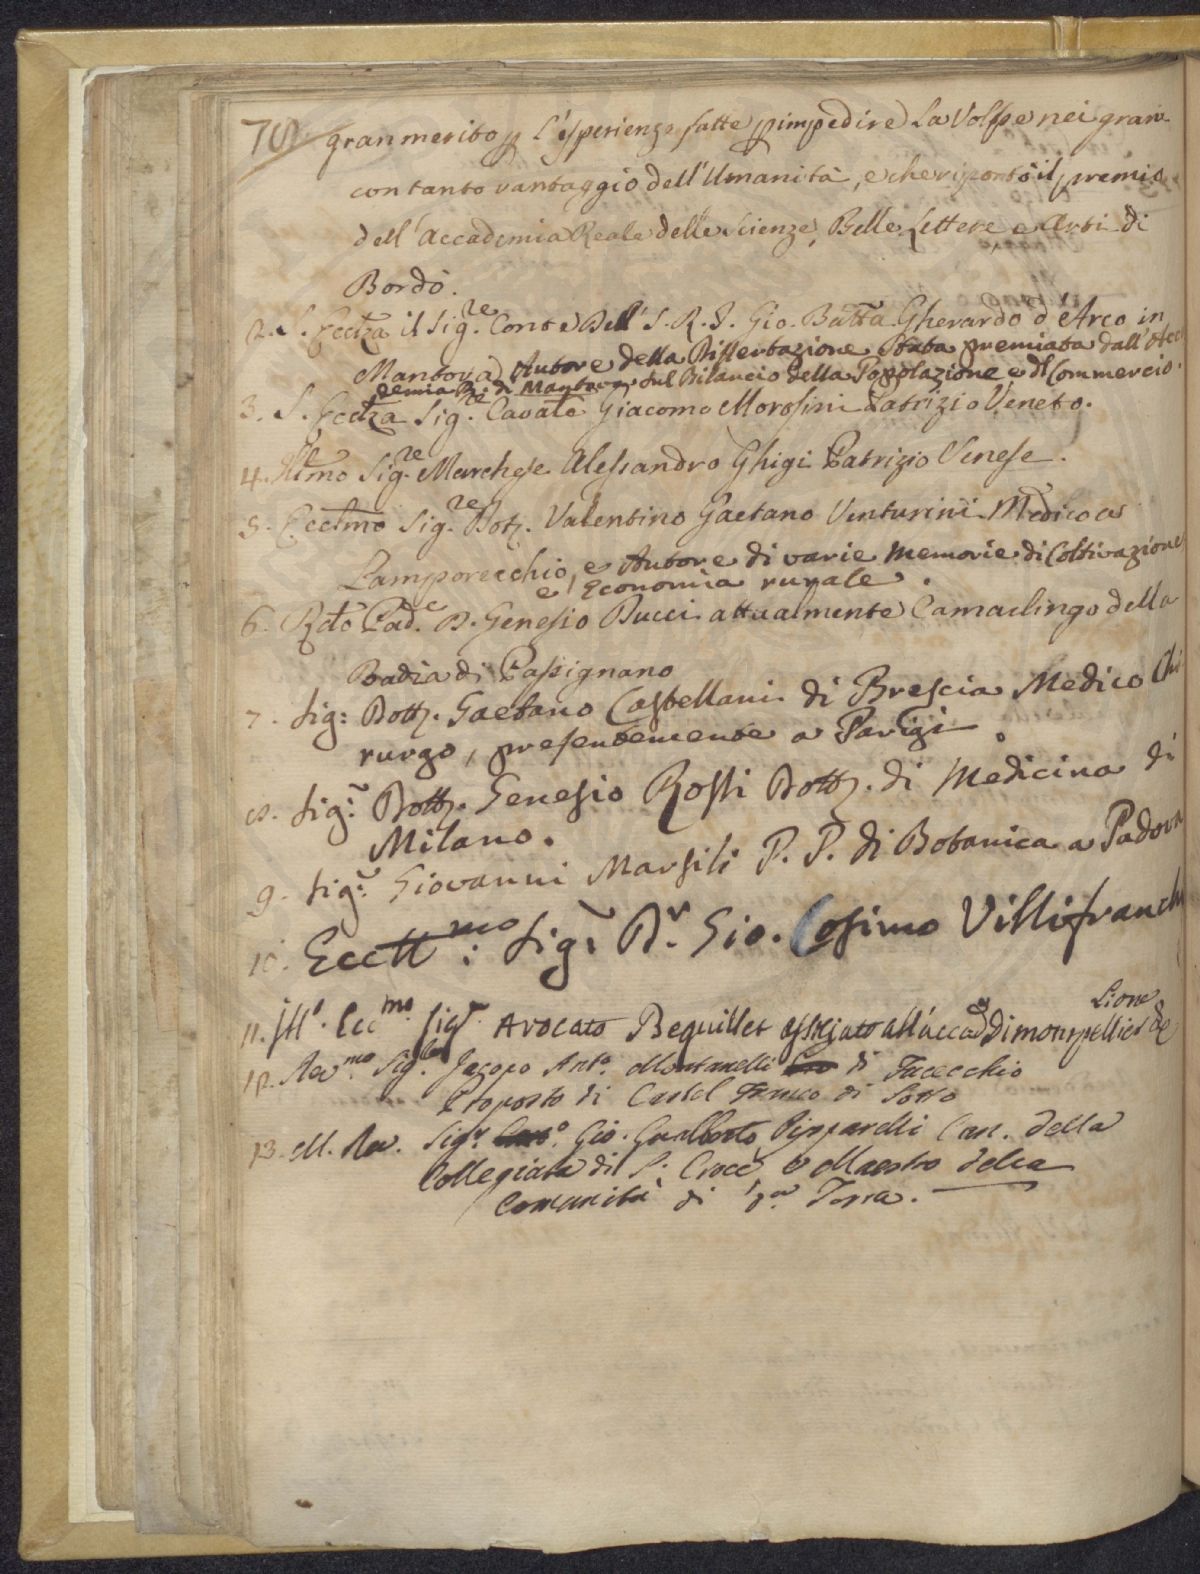 gran merito p l'esperienze fatte p impedire La Volpe nei grani
con tanto vantaggio dell'Umanità, e che riportò il premio
dell'Accademia Reale delle Scienze, Belle Lettere e Arti di
Bordò.
2. S. Eccllza il Sig.re Conte Dell' S. R. I. Gio. Batta Gherardo d'Arco in
Mantova Autore della Dissertazione Stata premiata dall'Acca
demia R. di Mantova sul Bilancio della Popolazione e del Commercio.
3. S. Eccllza Sig.re Cavale Giacomo Morosini Patrizio Veneto.
4. Illmo Sig.re Marchese Alessandro Ghigi Patrizio Senese.
5. Eccllmo Sig.re Dott. Valentino Gaetano Venturini Medico a
Lamporecchio, e Autore di varie Memorie di Coltivazione
e Economia rurale.
6. Rdo Pad.e D. Genesio Bucci attualmente Camarlingo della
Badia di Passignano
7. Sig: Dott. Gaetano Castellani di Brescia Medico Chi
rurgo, presentemente a Parigi.
8. Sig:r Dott. Genesio Rossi Dott. di Medicina di
Milano.
9. Sig:r Giovanni Marsili P. P. di Botanica a Padova
10. Eccll:mo Sig:r D.r Gio. Cosimo Villifranchi
11. Ill. Ecc.mo Sig.r Avocato Beguillet Assoziato all'acca di monpellier de
Lione
12. Rev.mo Sig.r Jacopo Ant.o Montanelli di Fucecchio
Proposto di Castel Franco di Sotto
13. M. Rev. Sig.r Gio. Gualberto Pipparelli Can. della
Collegiata di S. Croce e Maestro della
Comunità di d.a Terra.